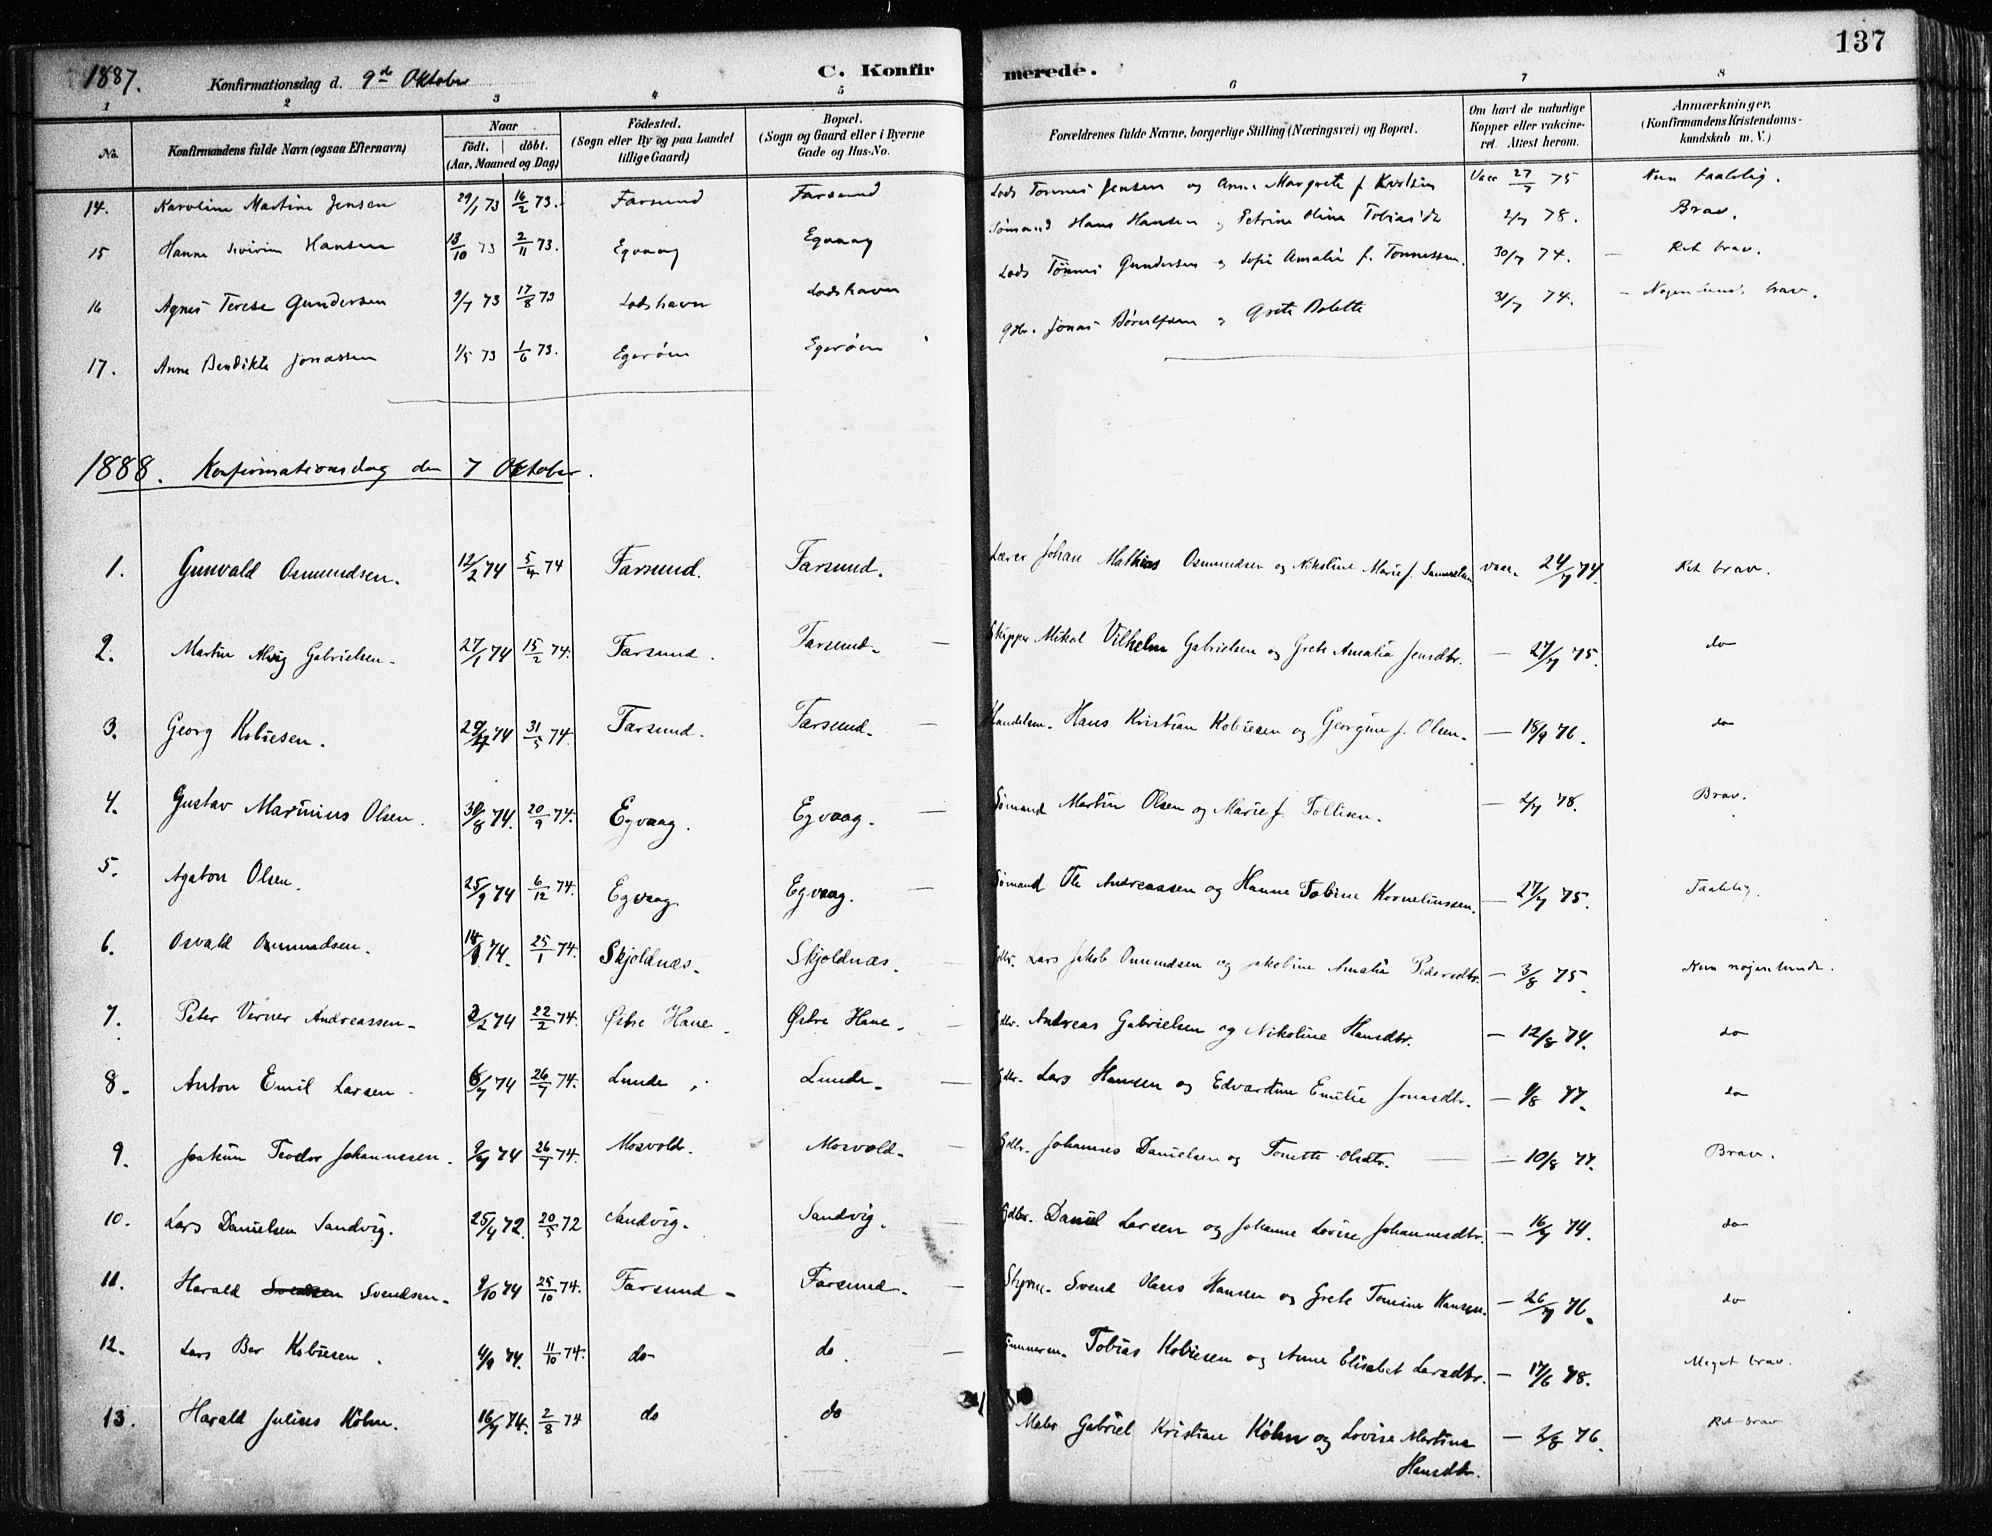 137
1887. Konfirmationsdag d. 9de Oktober C. Konfirmerede.
1 2 3 4 5 6 7 8
No. Konfirmandens fulde Navn (ogsaa Efternavn) Naar födt. döbt. (Aar, Maaned og Dag) Födested. (Sogn eller By og paa Landet tillige Gaard) Bopæl. (Sogn og Gaard eller i Byerne Gade og Hus-No. Forældrenes fulde Navne, borgerlige Stilling (Næringsvei) og Bopæl. Om havt de naturlige Kopper eller vaccineret. Attest herom. Anmærkninger. (Konfirmandens Kristendomskundskab m. V.)
14. Karoline Martine Jensen 29/1 73 16/2 73. Farsund Farsund Lods Tønnes Jensen og Anne Margrete f. Vacc 27/7 75 Nun taalelig.
15 Hanne Severine Hansen 13/10 73 2/11 73. Egvaag Egvaag Sømand Hans Hansen og Petrine Tobiasdt 2/7 78. Brav.
16 Agnes Terese Gundersen 9/7 73 17/8 73 Lodshavn Lodshavn Lods Tønnes Gundersen og Sofie Amalie f. Tønnessen. 30/7 74. — Ret brav.
17. Anne Bendikte Jonassen 1/5 73 1/6 73. Egerøen Egerøen Gdbr. Jonas og Grete Bolette 31/7 74. — brav.
1888. Konfirmationsdag den 7 Oktober.
1. Gunvald Osmundsen. 12/2 74 5/4 74 Farsund. Farsund. Lærer Johan Mathias Osmundsen og Nikoline Marie f. Samuelsen vacc. 24/7 74. Ret brav.
2. Martin Alvig Gabrielsen. 27/1 74 15/2 74. Farsund. Farsund. — Skipper Mikal Vilhelm Gabrielsen og Grete Amalia Jensdtr. — 27/7 75. do
3. Georg Kobiesen. 29/4 74 31/5 74. Farsund. Farsund. — Handelsm. Hans Kristian Kobiesen og Georgine f. Olsen. — 18/9 76. do
4. Gustav Marinius Olsen. 30/8 74. 20/9 74. Egvaag. Egvaag. — Sømand Martin Olsen og Marie f. Tollisen. — 2/7 78. Brav.
5. Agaton Olsen. 25/9 74 6/12 74. Egvaag. Egvaag. — Sømand Ole Andreassen og Hanne Tobine Korneliussen. — 27/7 75. Taalelig.
6. Osvald Osmundsen. 18/1 74. 25/1 74. Skjoldnæs. Skjoldnæs. — Gdbr. Lars Jakob Osmundsen og Jakobine Amalia Pedersdtr. — 3/8 75. Nun nøgenlunde.
7. Peter Verner Andreassen. 2/2 74 22/2 74. Østre Hane. Østre Hane. — Gdbr. Andreas Gabrielsen og Nikoline Hansdtr. — 12/8 74. do
8. Anton Emil Larsen. 6/7 74 26/7 74. Lunde. Lunde. — Gdbr. Lars Hansen og Edvardine Emilie Jonasdtr. — 1/8 77. do
9. Joakim Teodor Johannessen. 9/7 74 26/7 74. Mosvold. Mosvold. — Gdbr. Johannes Danielsen og Tonette Olsdtr. — 10/8 77. Brav.
10. Lars Danielsen Sandvig. 25/4 72. 20/5 72 Sandvig. Sandvig. — Gdbr. Daniel Larsen og Johanne Lovise Johannesdtr. — 16/7 74. do
11. Harald Svendsen. 9/10 74 25/10 74. Farsund. Farsund. — Styrm. Svend Olaus Hansen og Grete Tomine Hansen. — 26/7 76. do
12. Lars Ber Kobiesen. 4/9 74. 11/10 74. do do. — Tømmerm. Tobias Kobiesen og Anne Elisabet Larsdtr. — 17/6 78. Meget brav.
13. Harald Julius Köhn. 16/7 74. 2/8 74 do do Maler Gabriel Kristian Köhn og Lovise Martina — 2/8 76. Ret brav
Hansdtr.